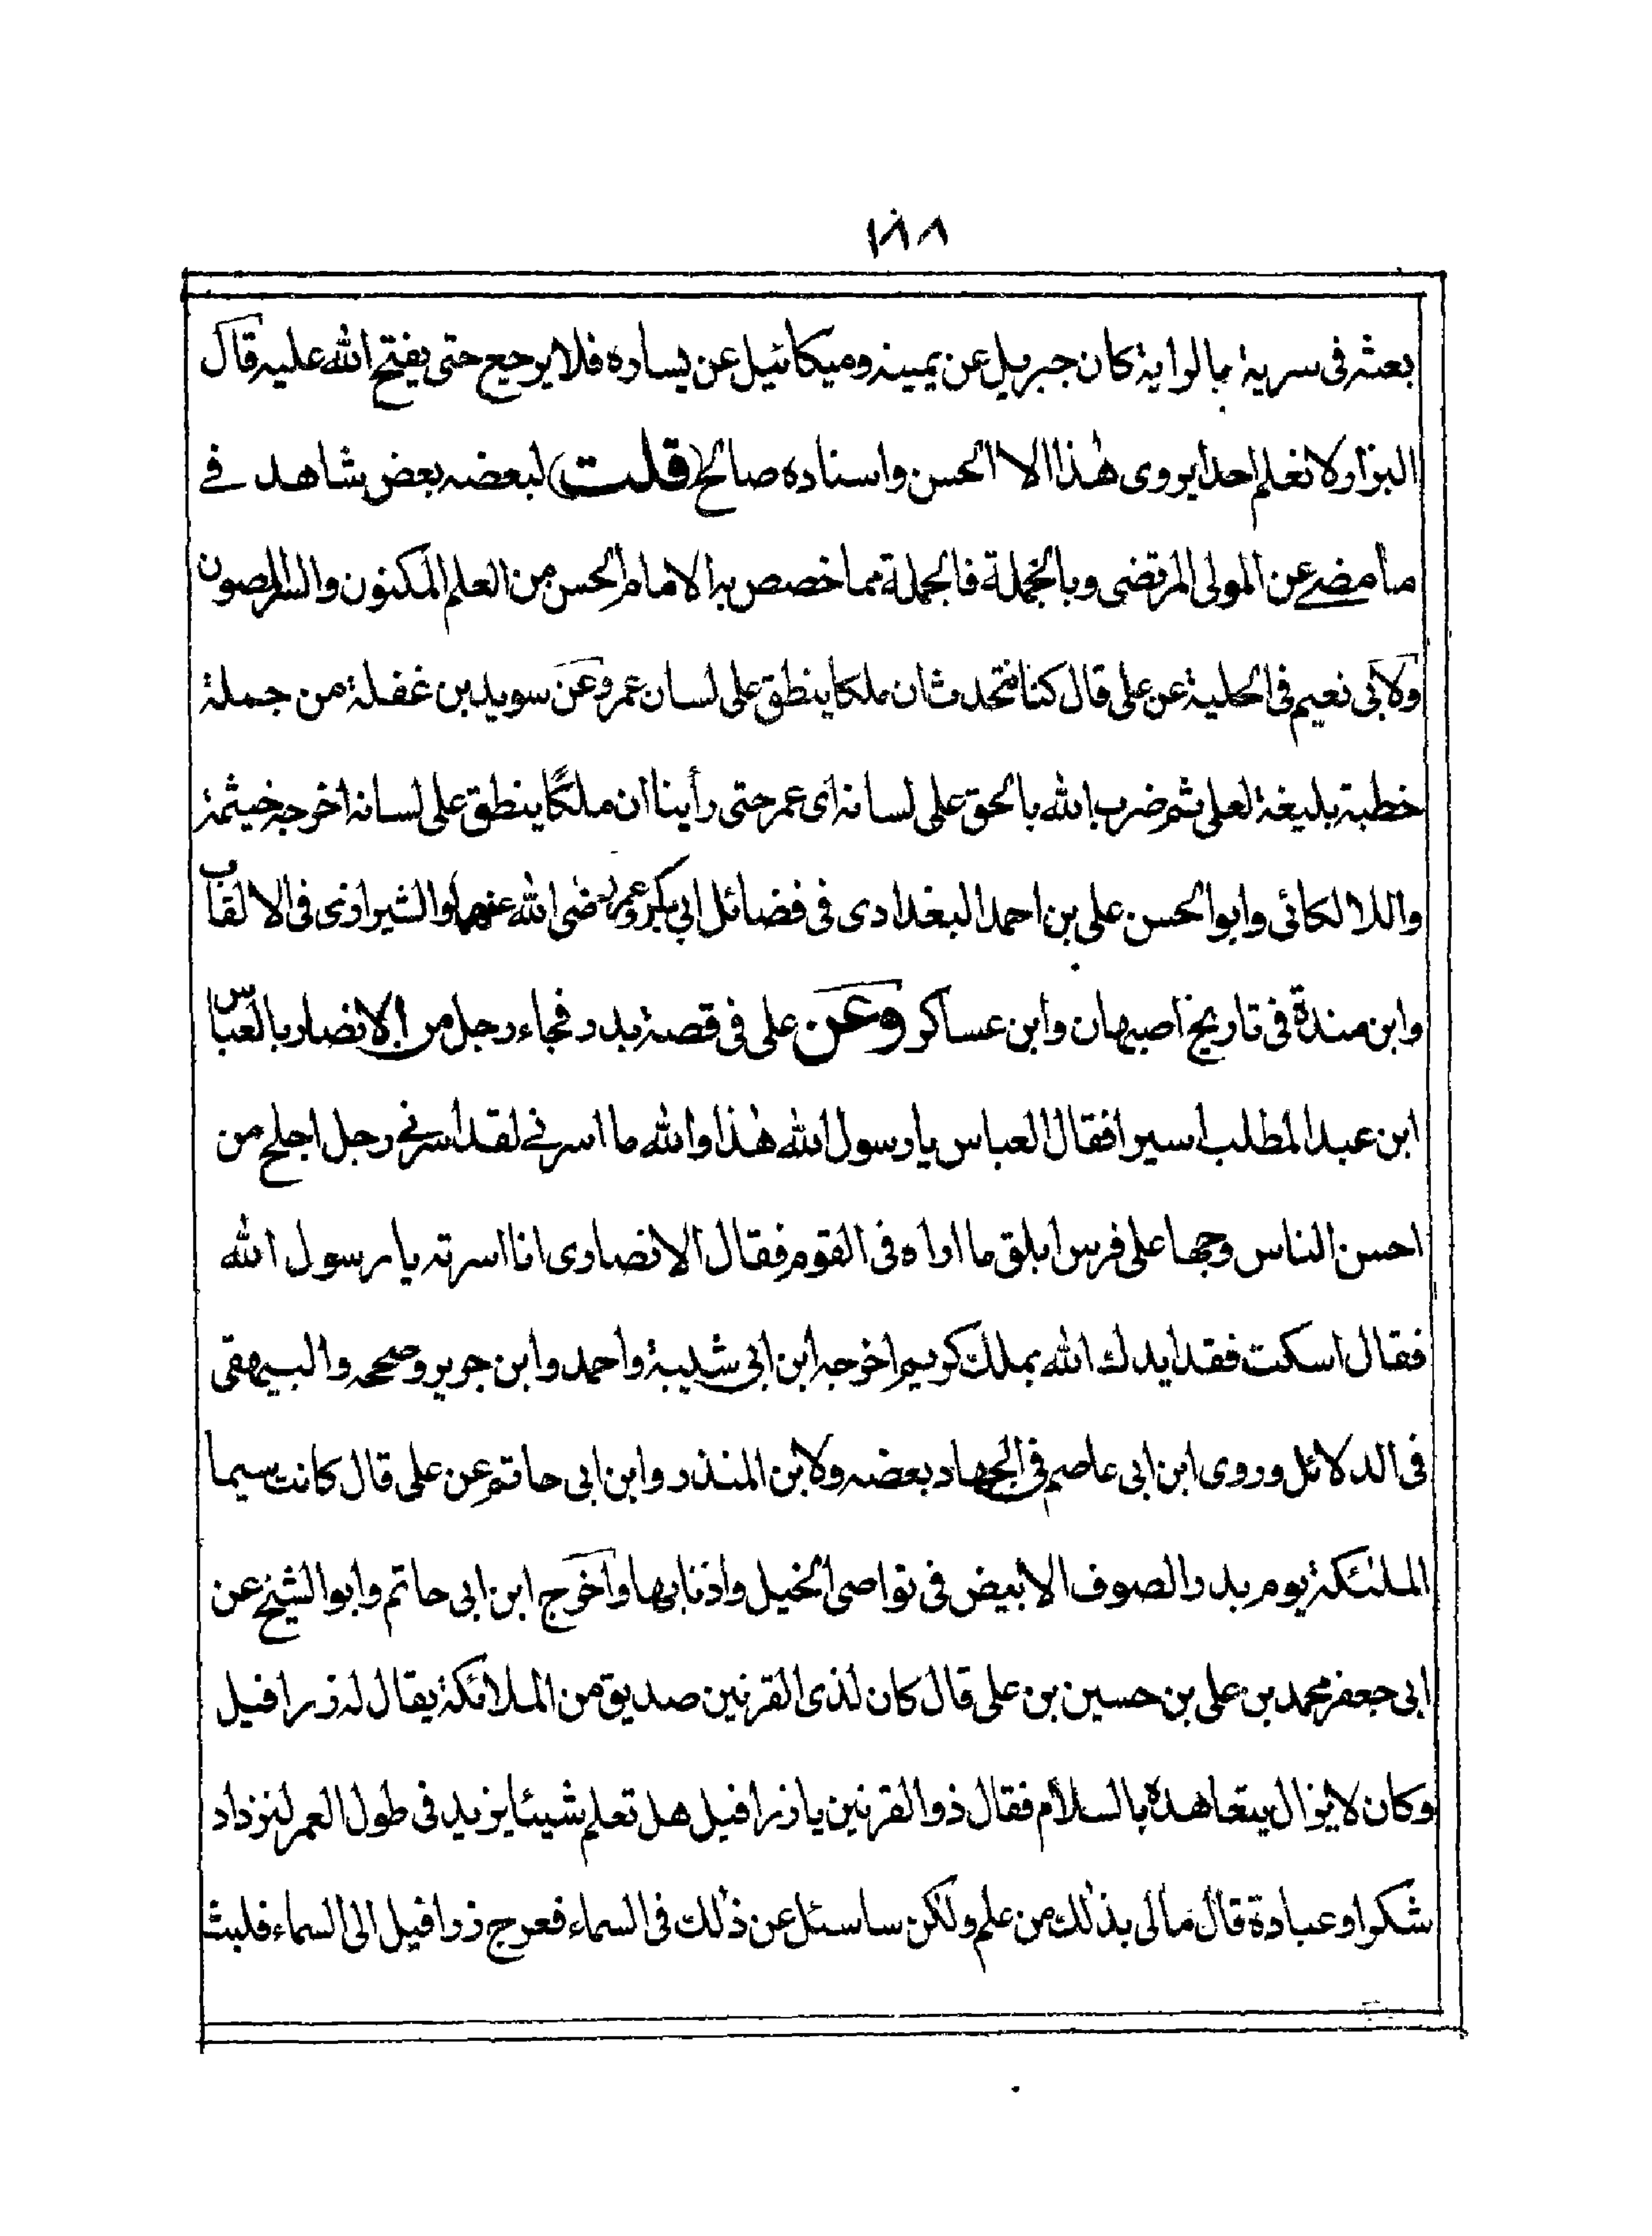 ١٨٨
بعثه في سرية بالراية كان جبريل عن يمينه وميكائيل عن يساره فلا يرجع حتى يفتح الله عليه قال
البزار لا نعلم احدا يروى هٰذا الا الحسن واسناده صالح (قلت) لبعضه بعض شاهد في
ما مضے عن المولى المرتضى وبالجملة فالجملة مما خصص به الامام الحسن من العلم المكنون والسر المصون
ولابى نعيم فى الحلية عن على قال كنا نتحدث ان ملكا ينطق على لسان عمر وعن سويد بن غفلة من جملة
خطبة بليغة لعلى ثم ضرب الله بالحق على لسانه اى عمر حتى رأينا ان ملكًا ينطق على لسانه اخرجه خيثمة
واللالكائى وابو الحسن على بن احمد البغدادى فى فضائل ابي بكر وعمر رضى الله عنهما والشيرازى فى الالقاب
وابن مندة فى تاريخ اصبهان وابن عساكر وعن على فى قصة بدر فجاء رجل من الانصار بالعباس
ابن عبد المطلب اسيرا فقال العباس يا رسول الله هٰذا والله ما اسرنے لقد اسرنے رجل اجلح من
احسن الناس وجها على فرس ابلق ما اراه فى القوم فقال الانصارى انا اسرته يا رسول الله
فقال اسكت فقد ايدك الله بملك كريم اخرجه ابن ابى شيبة واحمد وابن جرير وصححه والبيهقى
فى الدلائل وروى ابن ابى عاصم فى الجهاد بعضه ولابن المنذر وابن ابى حاتم عن على قال كانت سيما
الملئكة يوم بدر الصوف الابيض فى نواصى الخيل واذنابها واخرج ابن ابى حاتم وابو الشيخ عن
ابى جعفر محمد بن على بن حسين بن على قال كان لذى القرنين صديق من الملائكة يقال له زرافيل
وكان لا يزال يتعاهده بالسلام فقال ذو القرنين يا زرافيل هل تعلم شيئا يزيد فى طول العمر لنزداد
شكرا وعبادة قال مالى بذلك من علم ولٰكن ساسئل عن ذٰلك فى السماء فعرج زرافيل الى السماء فلبث